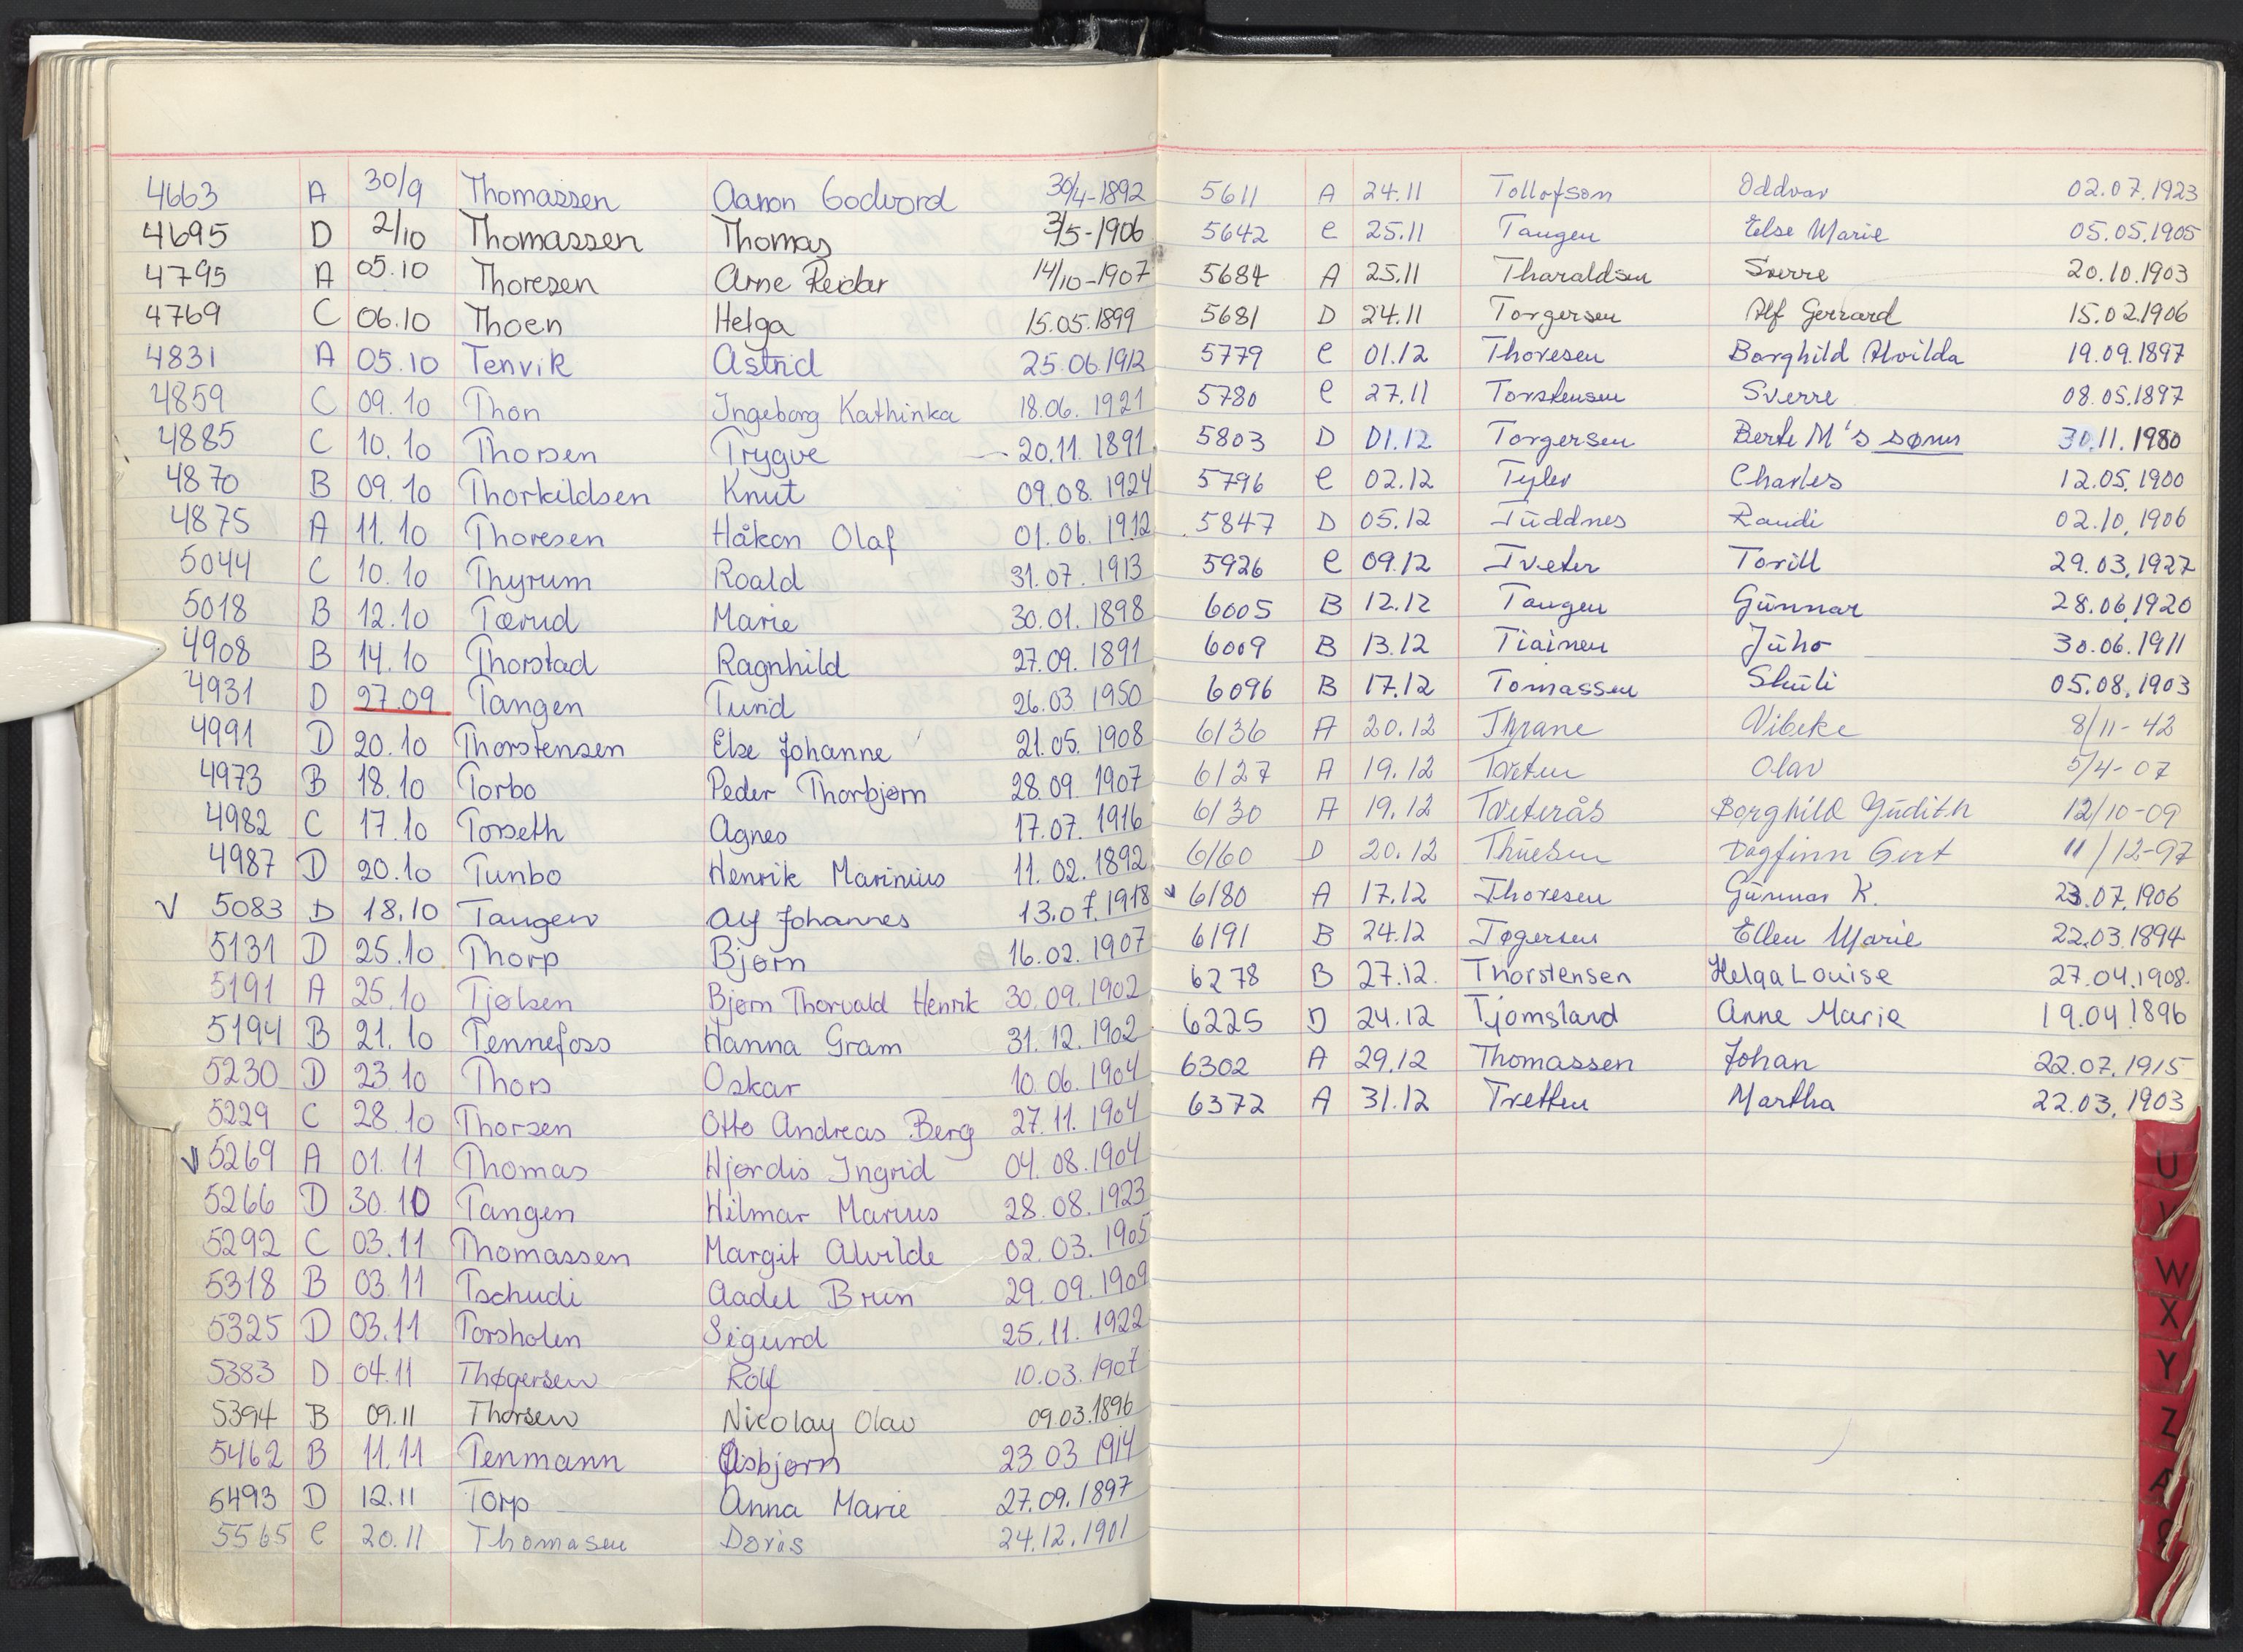 4663 A 30/9 Thomassen Aaron Godvord 30/4-1892
4695 D 2/10 Thomassen Thomas 3/5-1906
4795 A 05.10 Thoresen Arne Reidar 14/10-1907
4769 C 06.10 Thoen Helga 15.05.1899
4831 A 05.10 Tenvik Astrid 25.06.1912
4859 C 09.10 Thon Ingeborg Kathinka 18.06.1921
4885 C 10.10 Thorsen Trygve 20.11.1891
4870 B 09.10 Thorkildsen Knut 09.08.1924
4875 A 11.10 Thoresen Håkon Olaf 01.06.1912
5044 C 10.10 Thyrum Roald 31.07.1913
5018 B 12.10 Tærud Marie 30.01.1898
4908 B 14.10 Thorstad Ragnhild 27.09.1891
4931 D 27.09 Tangen Turid 26.03 1950
4991 D 20.10 Thorstensen Else Johanne 21.05.1908
4973 B 18.10 Torbo Peder Thorbjørn 28.09.1907
4982 C 17.10 Torseth Agnes 17.07.1916
4987 D 20.10 Tunbo Henrik Marinius 11.02.1892
V 5083 D 18.10 Tangen Alf Johannes 13.07.1918
5131 D 25.10 Thorp Bjørn 16.02.1907
5191 A 25.10 Tjølsen Bjørn Thorvald Henrik 30.09.1902
5194 B 21.10 Tennefoss Hanna Gram 31.12.1902
5230 D 23.10 Thors Oskar 10.06.1904
5229 C 28.10 Thorsen Otto Andreas Berg 27.11.1904
V 5269 A 01.11 Thomas Hjørdis Ingrid 04.08.1904
5266 D 30.10 Tangen Hilmar Marius 28.08.1923
5292 C 03.11 Thomassen Margit Alvilde 02.03.1905
5318 B 03.11 Tschudi Aadel Brun 29.09.1909
5325 D 03.11 Torsholen Sigurd 25.11.1922
5383 D 04.11 Thøgersen Rolf 10.03.1907
5394 B 09.11 Thorsen Nicolay Olav 09.03.1896
5462 B 11.11 Tenmann Asbjørn 23 03 1914
5493 D 12.11 Torp Anna Marie 27.09.1897
5565 C 20.11 Thomasen Doris 24.12.1901
5611 A 24.11 Tollofsen Oddvar 02.07.1923
5642 C 25.11 Tangen Else Marie 05.05.1905
5684 A 25.11 Tharaldsen Sverre 20.10.1903
5681 D 24.11 Torgersen Alf Gerrard 15.02.1906
5779 C 01.12 Thoresen Borghild Alvilda 19.09.1897
5780 C 27.11 Torstensen Sverre 08.05.1897
5803 D 01.12 Torgersen Berte M's sønn 30.11.1980
5796 C 02.12 Tyler Charles 12.05.1900
5847 D 05.12 Tuddnes Randi 02.10.1906
5926 C 09.12 Tveter Torill 29.03.1927
6005 B 12.12 Tangen Gunnar 28.06.1920
6009 B 13.12 Tiainen Juho 30.06.1911
6096 B 17.12 Tomassen Skuli 05.08.1903
6136 A 20.12 Thrane Vibeke 8/11-42
6127 A 19.12 Tveten Olav 5/4-07
6130 A 19.12 Tveterås Borghild Judith 12/10-09
6160 D 20.12 Thuesen Dagfinn Gert 11/12-97
v 6180 A 17.12 Thoresen Gunnar K. 23.07.1906
6191 B 24.12 Tøgersen Ellen Marie 22.03.1894
6278 B 27.12. Thorstensen Helga Louise 27.04.1908.
6225 D 24.12 Tjomsland Anne Marie 19.04.1896
6302 A 29.12 Thomassen Johan 22.07.1915
6372 A 31.12 Tretten Martha 22.03.1903
U
V
W
X
Y
Z